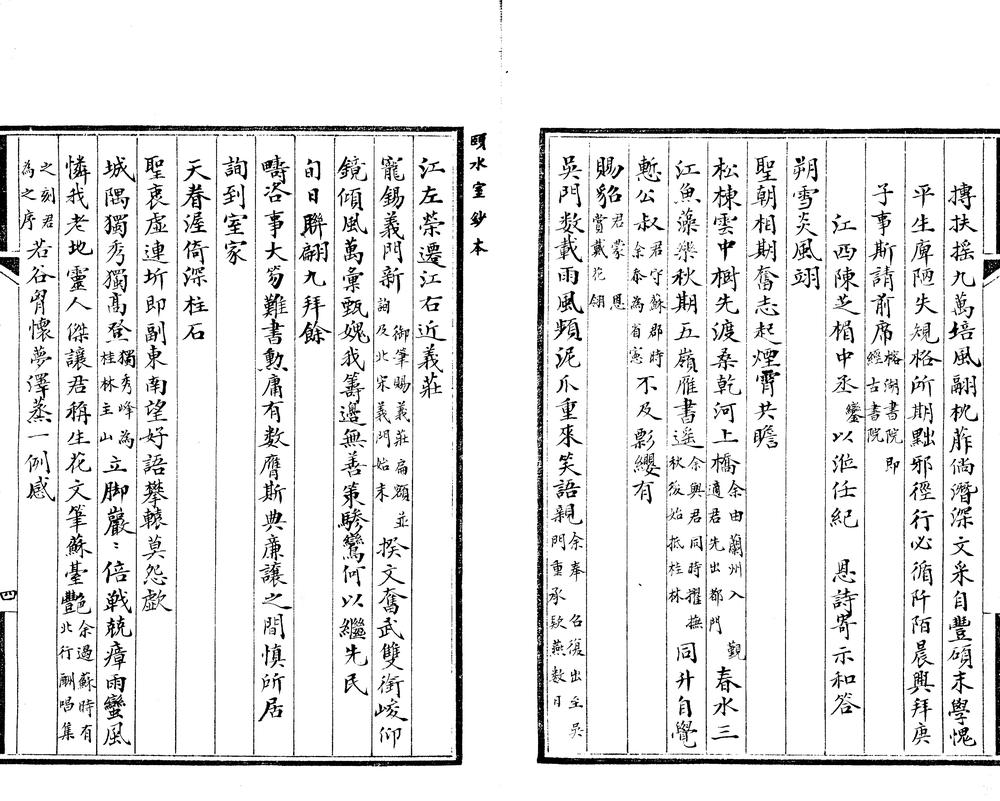 摶扶搖九萬培風翮枕胙倘潛深文采自豐碩末學愧
平生庳陋失規格所期黜邪徑行必循阡陌晨興拜庚
子事斯請前席榕湖書院即經古書院
江西陳芝楣中丞鑾以涖任紀 恩詩寄示和答
朔雪炎風翊
聖朝相期奮志起煙霄共瞻
松棟雲中樹先渡桑乾河上橋余由蘭州入 覲適君先出都門春水三
江魚藻樂秋期五嶺雁書遙余與君同時擢撫秋後始抵桂林同升自覺
慙公叔君守蘇郡時余忝為省憲不及影纓有
賜貂君蒙 恩賞戴花翎
吳門数載雨風頻泥爪重來笑語親余奉 召復出至吳門重承欵燕数日
頤水室鈔本
江左榮遷江右近義莊
寵錫義門新御筆賜義莊扁額並詢及北宋義門始末揆文奮武雙銜峻仰
鏡傾風萬彙甄媿我籌邊無善策驂鸞何以繼先民
旬日聯翩九拜餘
疇洛事大笏難書勲庸有数膺斯典廉讓之間慎所居
詢到室家
天眷渥倚深柱石
聖衷虛連圻即副東南望好語攀轅莫怨歔
城隅獨秀獨高登獨秀峰為桂林主山立脚巖〻倍戰兢瘴雨蠻風
憐我老地靈人傑讓君稱生花文筆蘇臺艷余過蘇時有北行酬唱集
之刻君為之序若谷胷懷夢澤蒸一例感
四